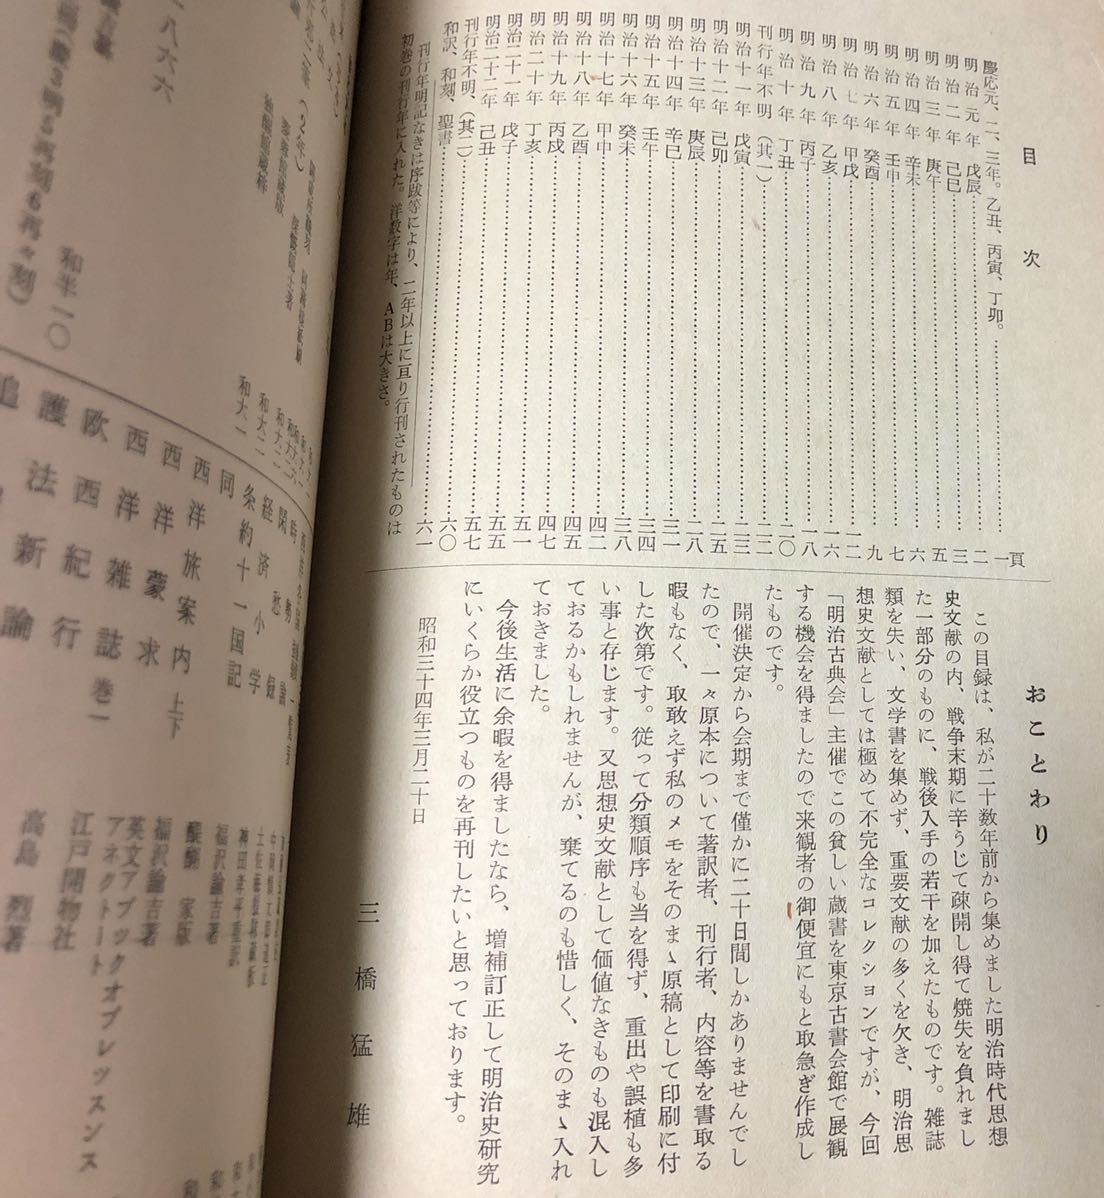 目次
慶応元、二、三年。乙丑、丙寅、丁卯。……一頁
明治元年 戊辰……二
明治二年 己巳……三
明治三年 庚午……五
明治四年 辛未……六
明治五年 壬申……七
明治六年 癸酉……九
明治七年 甲戌……一二
明治八年 乙亥……一六
明治九年 丙子……一八
明治十年 丁丑……二〇
刊行年不明(其一)……二二
明治十一年 戊寅……二三
明治十二年 己卯……二五
明治十三年 庚辰……二八
明治十四年 辛巳……三一
明治十五年 壬午……三四
明治十六年 癸未……三八
明治十七年 甲申……四二
明治十八年 乙酉……四五
明治十九年 丙戌……四七
明治二十年 丁亥……五一
明治二十一年 戊子……五五
明治二十二年 己丑……五七
刊行年不明、(其二)……六〇
和訳、和刻、聖書……六一
刊行年明記なきは序跋等により、二年以上に亘り行刊されたものは
初巻の刊行年に入れた。洋数字は年、ABは大きさ。
おことわり
この目録は、私が二十数年前から集めました明治時代思想
史文献の内、戦争末期に辛うじて疎開し得て焼失を負れまし
た一部分のものに、戦後入手の若干を加えたものです。雑誌
類を失い、文学書を集めず、重要文献の多くを欠き、明治思
想史文献としては極めて不完全なコレクションですが、今回
「明治古典会」主催でこの貧しい蔵書を東京古書会館で展観
する機会を得ましたので来観者の御便宜にもと取急ぎ作成し
たものです。
開催決定から会期まで僅かに二十日間しかありませんでし
たので、一々原本について著訳者、刊行者、内容等を書取る
暇もなく、取敢えず私のメモをそのまゝ原稿として印刷に付
した次第です。従って分類順序も当を得ず、重出や誤植も多
い事と存じます。又思想史文献として価値なきものも混入し
ておるかもしれませんが、棄てるのも惜しく、そのまゝ入れ
ておきました。
今後生活に余暇を得ましたなら、増補訂正して明治史研究
にいくらか役立つものを再刊したいと思っております。
昭和三十四年三月二十日
三橋猛雄
経済小学
条約十一国記 福沢諭吉著
同
西洋旅案内 上下 福沢諭吉著
西洋蒙求 英文アブックオブレッスンス
西洋雑誌 巻一
欧西紀行
護法新論 高島 烈著
江戸開物社
和半一〇